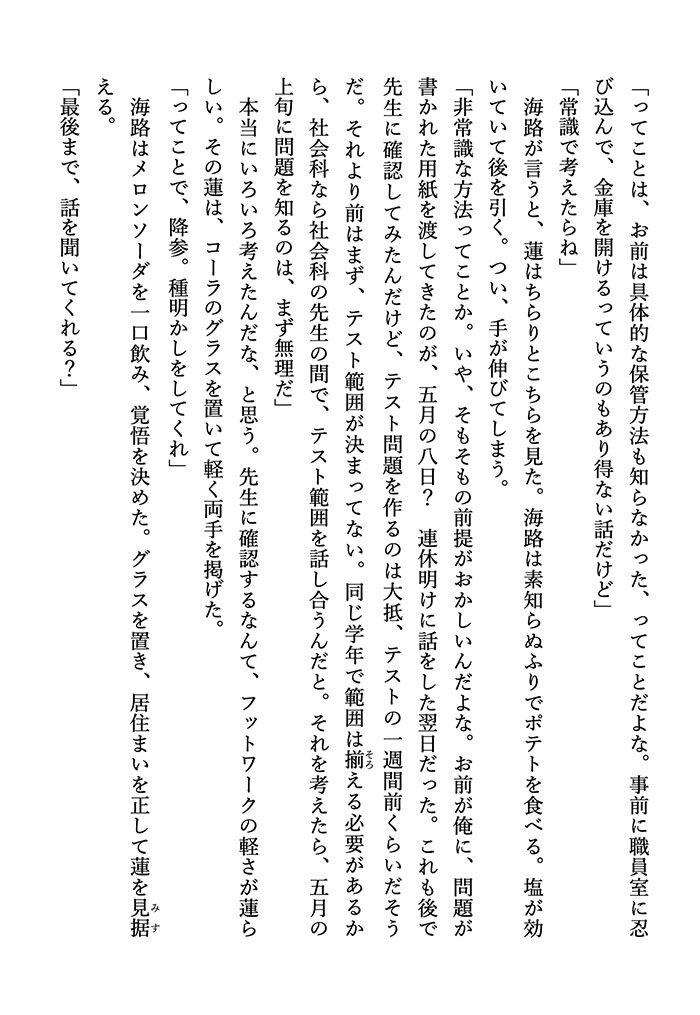 「ってことは、お前は具体的な保管方法も知らなかった、ってことだよな。事前に職員室に忍
び込んで、金庫を開けるっていうのもあり得ない話だけど」
「常識で考えたらね」
海路が言うと、蓮はちらりとこちらを見た。海路は素知らぬふりでポテトを食べる。塩が効
いていて後を引く。つい、手が伸びてしまう。
「非常識な方法ってことか。いや、そもそもの前提がおかしいんだよな。お前が俺に、問題が
書かれた用紙を渡してきたのが、五月の八日？　連休明けに話をした翌日だった。これも後で
先生に確認してみたんだけど、テスト問題を作るのは大抵、テストの一週間前くらいだそう
だ。それより前はまず、テスト範囲が決まってない。同じ学年で範囲は揃える必要があるか
ら、社会科なら社会科の先生の間で、テスト範囲を話し合うんだと。それを考えたら、五月の
上旬に問題を知るのは、まず無理だ」
本当にいろいろ考えたんだな、と思う。先生に確認するなんて、フットワークの軽さが蓮ら
しい。その蓮は、コーラのグラスを置いて軽く両手を掲げた。
「ってことで、降参。種明かしをしてくれ」
海路はメロンソーダを一口飲み、覚悟を決めた。グラスを置き、居住まいを正して蓮を見据
える。
「最後まで、話を聞いてくれる？」